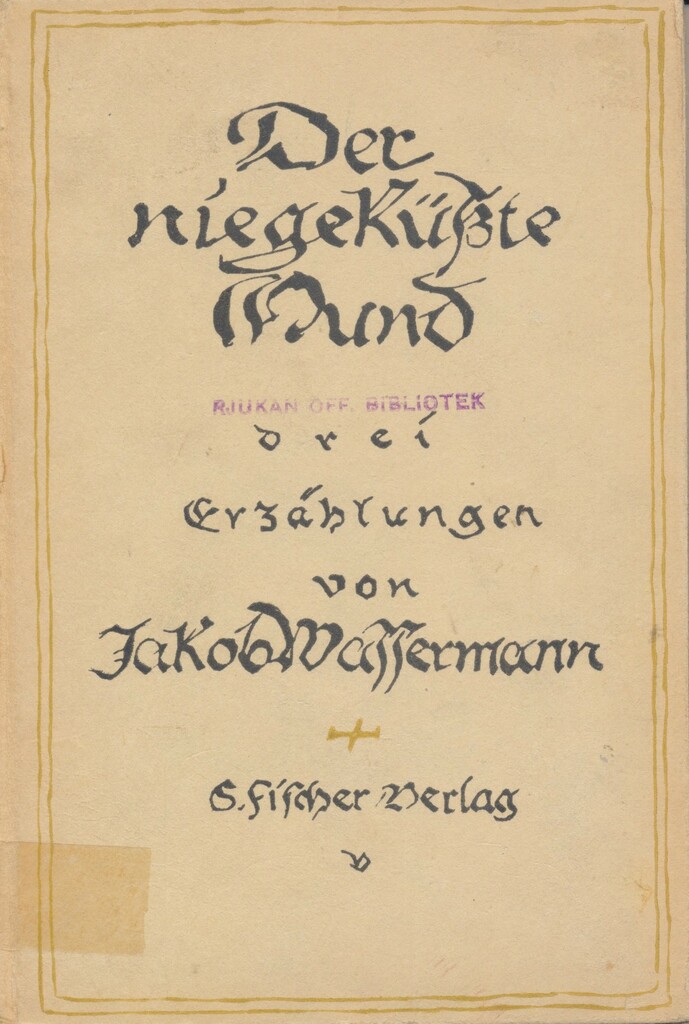 Der
niegeküßte
Mund
RJUKAN OFF. BIBLIOTEK
drei
Erzählungen
von
Jakob Wassermann
S. Fischer Verlag
v